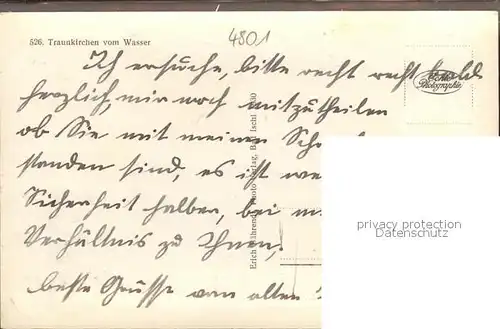 526. Traunkirchen vom Wasser
4801
Ich ersuche, bitte recht recht bald
herzlich, mir noch mitzutheilen
ob Sie mit meinen
standen sind, es ist
Sicherheit halber, bei
Verhältnis zu Ihnen,
beste Grüsse vom alten
Echte
Photographie
Erich Bährendt, Photo Verlag, Bad Ischl 1930
privacy protection
Datenschutz